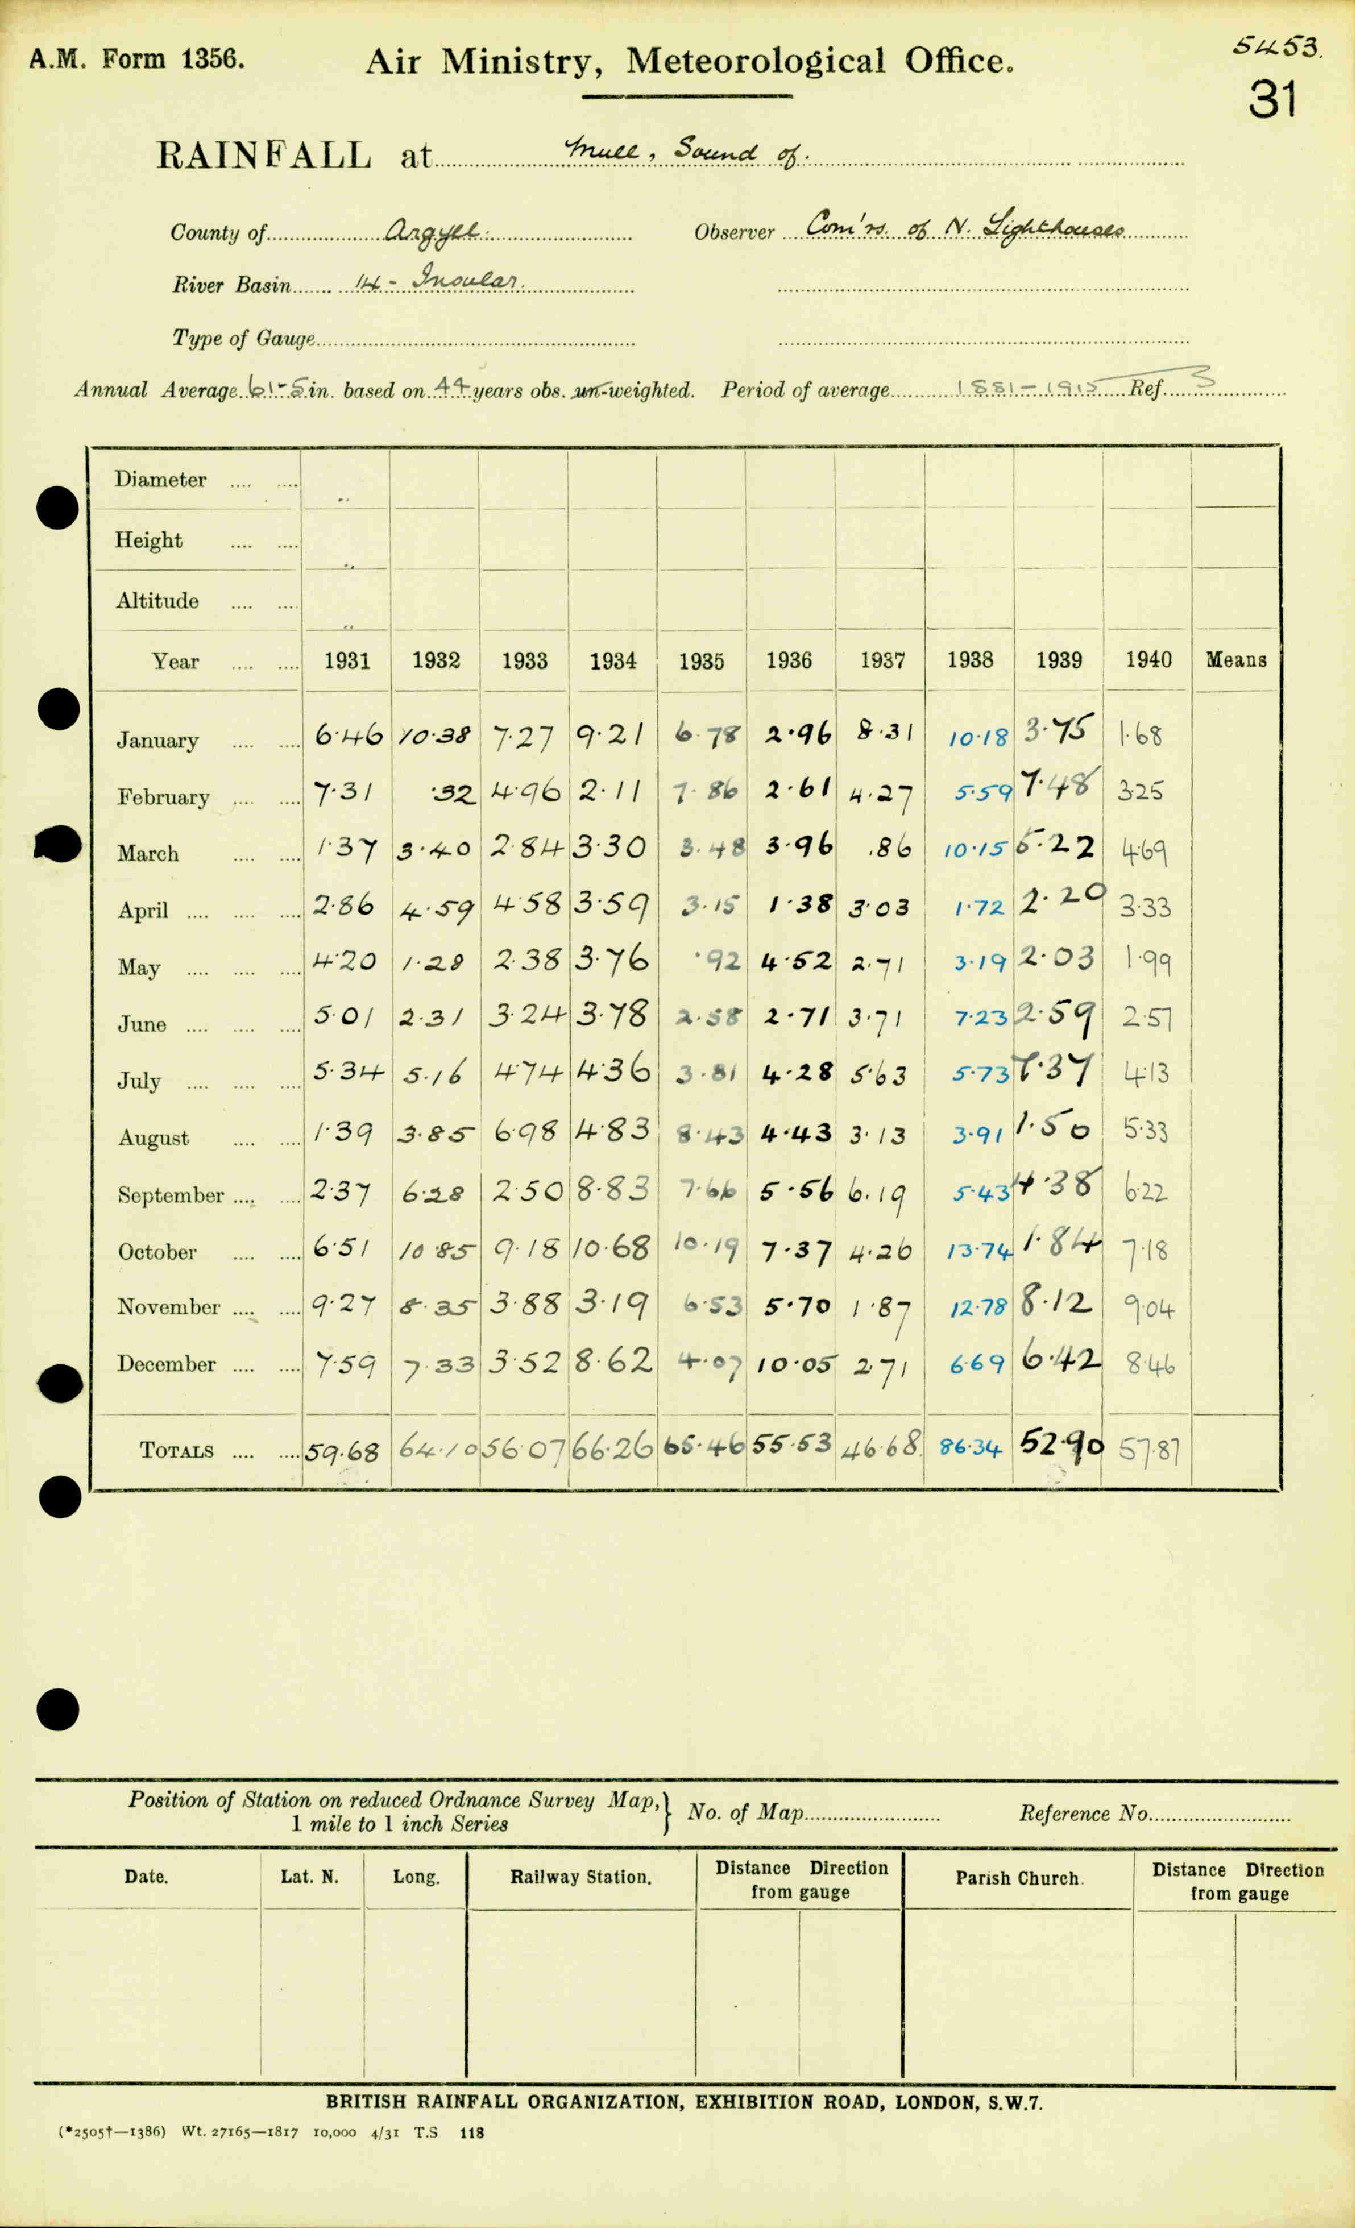 A.M. Form 1356.
Air Ministry, Meteorological Office.
5453.
31
RAINFALL at Mull, Sound of.
County of Argyll. Observer Com'rs. of N. Lighthouses
River Basin 14 - Insular.
Type of Gauge
Annual Average 61·5 in. based on 44 years obs. un-weighted. Period of average 1881-1915 Ref. 3
Diameter .... ....
Height .... ....
Altitude .... ....
Year .... .... 1931 1932 1933 1934 1935 1936 1937 1938 1939 1940 Means
January .... .... 6·46 10·38 7·27 9·21 6·78 2·96 8·31 10·18 3·75 1·68
February .... .... 7·31 ·32 4·96 2·11 7·86 2·61 4·27 5·59 7·48 3·25
March .... .... 1·37 3·40 2·84 3·30 3·48 3·96 ·86 10·15 5·22 4·69
April .... .... .... 2·86 4·59 4·58 3·59 3·15 1·38 3·03 1·72 2·20 3·33
May .... .... .... 4·20 1·28 2·38 3·76 ·92 4·52 2·71 3·19 2·03 1·99
June .... .... .... 5·01 2·31 3·24 3·78 2·58 2·71 3·71 7·23 2·59 2·57
July .... .... .... 5·34 5·16 4·74 4·36 3·81 4·28 5·63 5·73 7·37 4·13
August .... .... 1·39 3·85 6·98 4·83 8·43 4·43 3·13 3·91 1·50 5·33
September .... .... 2·37 6·28 2·50 8·83 7·66 5·56 6·19 5·43 4·38 6·22
October .... .... 6·51 10·85 9·18 10·68 10·19 7·37 4·26 13·74 1·84 7·18
November .... .... 9·27 8·35 3·88 3·19 6·53 5·70 1·87 12·78 8·12 9·04
December .... .... 7·59 7·33 3·52 8·62 4·07 10·05 2·71 6·69 6·42 8·46
TOTALS .... .... 59·68 64·10 56·07 66·26 65·46 55·53 46·68 86·34 52·90 57·87
Position of Station on reduced Ordnance Survey Map, } No. of Map Reference No.
1 mile to 1 inch Series
Date. Lat. N. Long. Railway Station. Distance Direction Parish Church. Distance Direction
from gauge from gauge
BRITISH RAINFALL ORGANIZATION, EXHIBITION ROAD, LONDON, S.W.7.
(*2505†—1386) Wt. 27165—1817 10,000 4/31 T.S 118